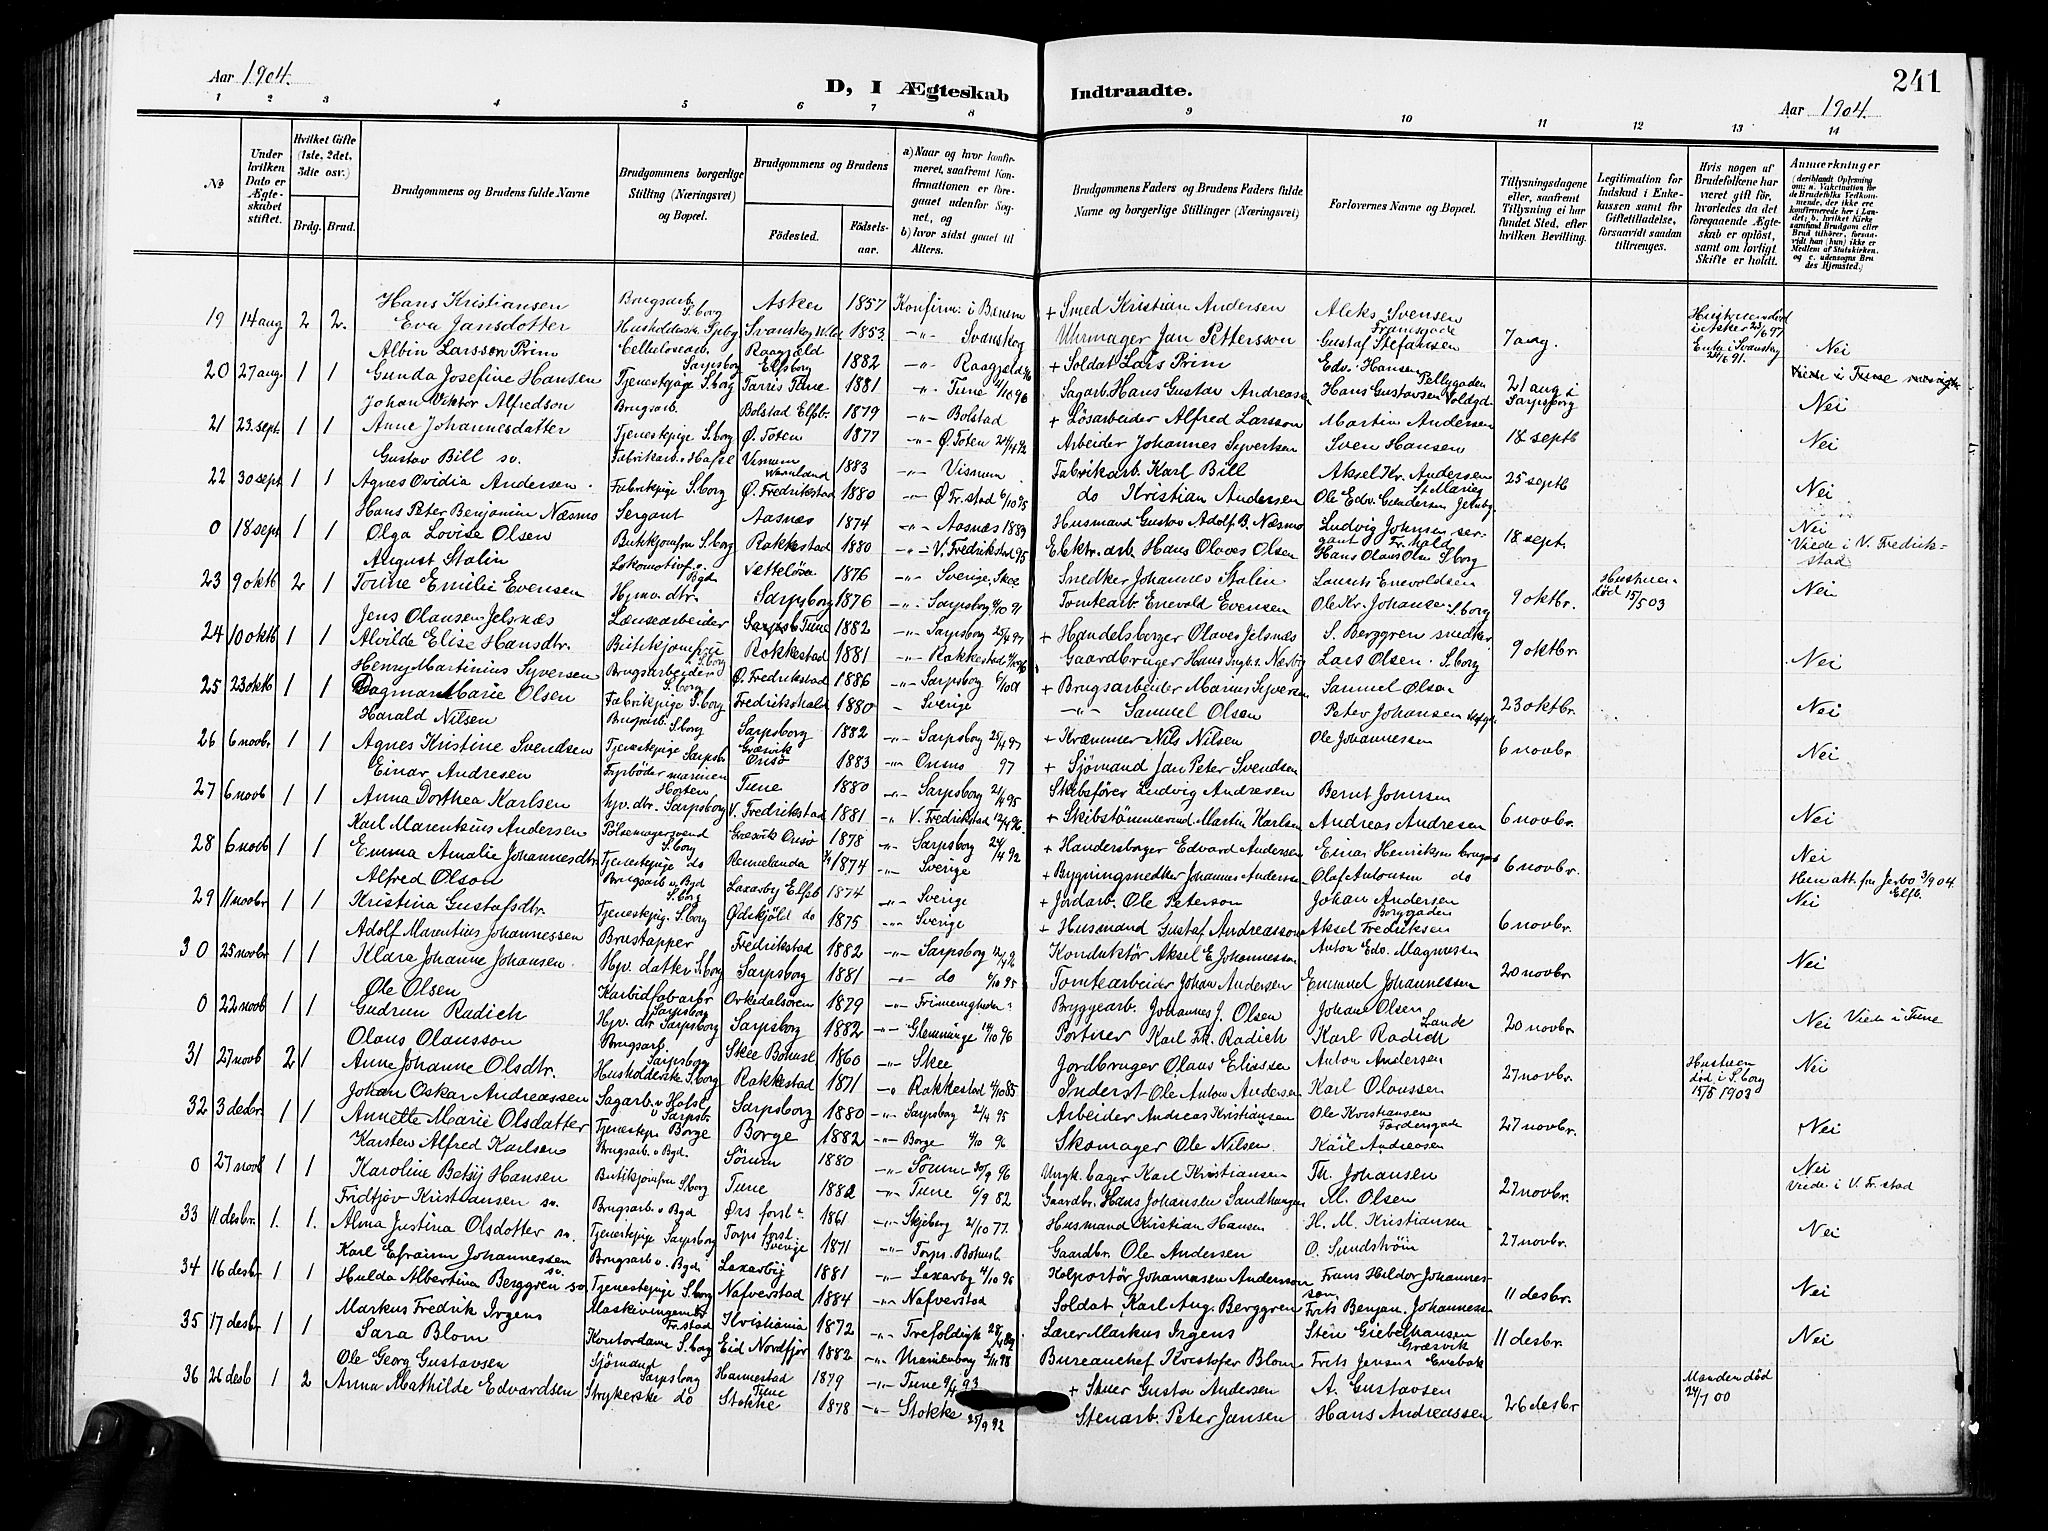 Aar 1904.
D, I Ægteskab Indtraadte.
241
Aar 1904.
1 2 3 4 5 6 7 8 9 10 11 12 13 14
№
Under hvilken Dato er Ægteskabet stiftet.
Hvilket Gifte (1ste, 2det, 3die osv.)
Brdg. Brud.
Brudgommens og Brudens fulde Navne
Brudgommens borgerlige Stilling (Næringsvei) og Bopæl.
Brudgommens og Brudens
Fødested. Fødselsaar.
a) Naar og hvor konfirmeret, saafremt Konfirmationen er foregaaet udenfor Sognet, og
b) hvor sidst gaaet til Alters.
Brudgommens Faders og Brudens Faders fulde Navne og borgerlige Stillinger (Næringsvei)
Forlovernes Navne og Bopæl.
Tillysningsdagene eller, saafremt Tillysning ei har fundet Sted, efter hvilken Bevilling.
Legitimation for Indskud i Enkekassen samt for Giftetilladelse, forsaavidt saadan tiltrænges.
Hvis nogen af Brudefolkene har været gift før, hvorledes da det foregaaende Ægteskab er opløst, samt om lovligt Skifte er holdt.
Anmærkninger
(deriblandt Oplysning om: a. Vakcination for de Brudefolks Vedkommende, der ikke ere konfirmerede her i Landet; b. hvilket Kirkesamfund Brudgom eller Brud tilhører, forsaavidt han (hun) ikke er Medlem af Statskirken, og c. udensogns Brudes Hjemsted.)
19 14 aug 2 2. Hans Kristiansen Brugsarb. S.borg Asker 1857 Konfirm. i Bærum + Smed Kristian Andersen Aleks Svensen
Eva Jansdotter 1853. -"- Svanskog Uhrmager Jan Pettersson Gustaf Stefansen 7 aug. Nei
20 27 aug. 1 1 Albin Larsson Prim Cellulosearb. Sarpsborg Raagjæld Elfsborg 1882 -"- Raagjæld + Soldat Lars Prim Edv. Hansen
Gunda Josefine Hansen Tjenestepige S.borg Tune 1881 -"- Tune Sagarb. Hans Gustav Andreasen Hans Gustavsen 21 aug i Sarpsborg Nei
21 23 sept. 1 1 Johan Viktor Alfredson Brugsarb. Bolstad Elfsb. 1879 -"- Bolstad + Løsarbeider Alfred Larsson Martin Andersen
Anne Johannesdatter Tjenestepige S.borg Ø. Toten 1877 -"- Ø. Toten Arbeider Johannes Syvertsen Sven Hansen 18 septb Nei
22 30 sept 1 1 Gustav Bill sv. Fabrikarb. Visnum 1883 -"- Visnum Fabrikarb. Karl Bill Aksel Kr. Andersen
Agnes Ovidia Andersen. Fabrikpige S.borg Ø. Fredrikstad 1880 -"- Ø Fr.stad 6/10 95 do Kristian Andersen Ole Edv. Gundersen 25 septb Nei
0 18 sept 1 1 Hans Peter Benjamin Næsmo Sergant Aasnæs 1874 -"- Aasnæs 1889 Husmand Gustav Adolf B. Næsmo Ludvig Johnsen sergant Fr.hald Nei
Olga Lovise Olsen Butikjomfru S.borg Rakkestad 1880 -"- V. Fredrikstad 95 Elektr. arb. Hans Olaves Olsen Hans Olaus Olsen S.borg 18 sept. Viede i V. Fredrikstad
23 9 oktb 2 1 August Stalin Lokomotivf. v. Byd 1876 -"- Sverige, Snedker Johannes Stalin Laurits Enevoldsen Hustruen død 15/5 03
Tomine Emilie Evensen Hjmv. dtr. Sarpsborg 1876 -"- Sarpsborg 4/10 91 Tomtearb. Enevold Evensen Ole Kr. Johansen S.borg 9 oktbr. Nei
24 10 oktb 1 1 Jens Olausen Jelsnæs Lænsearbeider Tune 1882 -"- Sarpsborg 25/4 97 + Handelsborger Olaves Jelsnæs S. Berggren snedker
Alvilde Elise Hansdtr. Butikjomfru S.borg Rakkestad 1881 -"- Rakkestad Gaardbruger Hans Lars Olsen S.borg 9 oktbr. Nei
25 23 oktb 1 1 Henry Martinius Syversen Brugsarbeider S.borg Ø. Fredrikstad 1886 -"- Sarpsborg 6/10 01 + Brugsarbeider Marius Syversen Samuel Olsen
Dagmar Marie Olsen Fabrikpige S.borg Fredrikshald 1880 -"- Sverige -"- Samuel Olsen Peter Johansen 23 oktbr. Nei
26 6 novbr 1 1 Harald Nilsen Brugsarb. S.borg Sarpsborg 1882 -"- Sarpsborg 25/4 97 + Kræmmer Nils Nilsen Ole Johannessen
Agnes Kristine Svendsen Tjenestepige Sarpsb. Græsvik Onsø 1883 -"- Onsøn 97 + Sjømand Jan Peter Svendsen 6 novbr. Nei
27 6 novb 1 1 Einar Andresen Fyrbøder marinen Horten Tune 1880 -"- Sarpsborg 21/4 95 Skibsfører Ludvig Andresen Bernt Johnsen
Anna Dorthea Karlsen hjv. dtr. Sarpsborg V. Fredrikstad 1881 -"- V. Fredrikstad 12/4 96 + Skibstømmermand Martin Karlsen Andreas Andresen 6 novbr. Nei
28 6 novb 1 1 Karl Marentius Andersen Pølsemagersvend S.borg Græsvik Onsø 1878 -"- Sarpsborg 24/4 92 + Handelsborger Edvard Andersen Einar Henriksen Nei
Emma Amalie Johannesdtr. Tjenestepige do Rennelanda 1874 -"- Sverige + Bygningssnedker Johannes Andersen Olaf Antonsen do 6 novbr. Hun att. fra 3/9 04. Elfb.
29 11 novbr 1 1 Alfred Olson Brugsarb v. Byd S.borg Laxarby Elfsb 1874 -"- Sverige + Jordarb. Ole Peterson Johan Andersen Borggaden Nei
Kristina Gustafsdtr. Tjenestepig. S.borg Ødskjöld do 1875 -"- Sverige + Husmand Gustaf Andreasson Aksel Fredriksen 6 novbr.
30 25 novbr 1 1 Adolf Marentius Johannessen Brustapper Fredrikstad 1882 -"- Sarpsborg 12/4 96 Konduktør Aksel E Johannessen Anton Edv. Magnussen
Klara Johanne Johansen Hjv. datter S.borg Sarpsborg 1881 -"- do 6/10 95 Tomtearbeider Johan Andersen Emmuel Johannessen 20 novbr. Nei
0 22 novb 1 1 Ole Olsen Karbidfabarbr Sarpsborg Orkedalsøren 1879 -"- Frimenigheden Bryggearb. Johannes J. Olsen Johan Olsen Lande
Gudrun Radich Hjv. dtr Sarpsborg Sarpsborg 1882 -"- Glemminge 14/10 96 Portner Karl Fr. Radich Karl Radich 20 novbr. Nei Viede i Tune
31 27 novb 2 1 Olaus Olausson Brugsarb. Sarpsborg Skee Bohusl 1860 -"- Skee Jordbruger Olaus Eliassen Anton Andersen Hustruen død i S.borg 15/5 1903
Anne Johanne Olsdtr. Husholderske S.borg Rakkestad 1871 -"- Rakkestad 4/10 85 Inderst Ole Anton Andersen Karl Olaussen 27 novbr. Nei
32 3 desbr. 1 1 Johan Oskar Andreassen Sagarb. v. Hafsl. v Sarpsb. Sarpsborg 1880 -"- Sarpsborg 21/4 95 Arbeider Andreas Kristiansen Ole Kristiansen
Annette Marie Olsdatter Tjenestep. Borge Borge 1882 -"- Borge 4/10 96 Skomager Ole Nilsen Karl Andresen 27 novbr. Nei
0 27 novb 1 1 Karsten Alfred Karlsen Brugsarb. v Byd. Sørum 1880 -"- Sørum 20/9 96 Ungk. bager Karl Kristiansen Th. Johansen Nei
Karoline Betsy Hansen Butikjomfru S.borg Tune 1882 -"- Tune Gaardbr. Hans Johansen Sandhaugen M. Olsen 27 novbr. Viede i V. Fr.stad
33 11 desbr. 1. 1. Fridtjov Kristiansen sv. Brugsarb. v Byd Ørs forst. 1861 -"- Skjeberg 21/10 77. Husmand Kristian Hansen H. M. Kristiansen
Alma Justina Olsdotter sv. Tjenestepige Sarpsborg Torps forst. Sverige 1871 -"- Torps. Bohusl. Gaardbr. Ole Andersen O. Sundström 27 novbr. Nei
34 16 desbr 1 1 Karl Efraim Johannessen sv. Brugsarb. v. Byd. Laxarby 1881 -"- Laxarby 4/10 95 Kolportør Johannesen Anderson Frans Hildor Johannessen
Hulda Albertina Berggren sv Tjenestepige S.borg Nafverstad 1884 -"- Nafverstad Soldat Karl Aug. Berggren Frits Benjam. Johannesen 11 desbr. Nei
35 17 desbr 1 1 Markus Fredrik Irgens Fr.stad Kristiania 1872 -"- Trefoldigh. Lærer Markus Irgens Sten Giebelhausen Græsvik
Sara Blom Kontordame S.borg Eid Nordfjor 1882 -"- Uranienborg 98 Bureauchef Kristofer Blom Frits Jensen 11 desbr. Nei
36 26 desb 1 2 Ole Georg Gustavsen Sjømand Sarpsborg Hannestad Tune 1879 -"- Tune 9/4 93 + Skuer Gustav Andersen A. Gustavsen Manden død 24/7 00
Anna Mathilde Edvardsen Strykerske do Stokke 1878 -"- Stokke 25/9 92 Stenarb. Peter Jansen Hans Andreassen 26 desbr